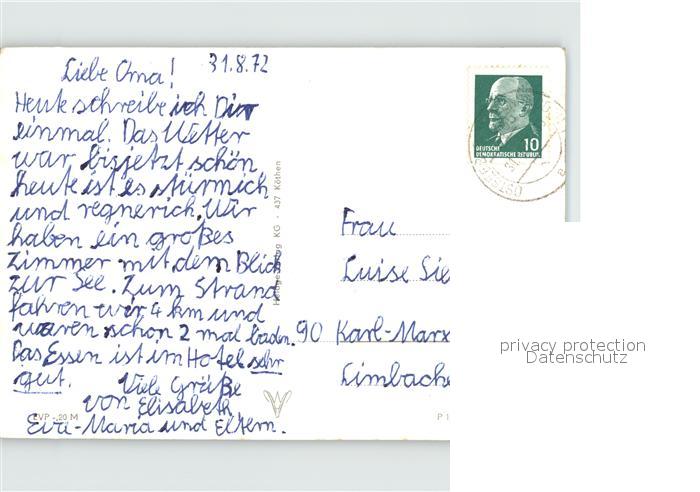 31.8.72
Liebe Oma!
Heute schreibe ich Dir
einmal. Das Wetter
war bis jetzt schön,
heute ist es stürmich
und regnerich. Wir
haben ein großes
Zimmer mit dem Blick
zur See. Zum Strand
fahren wir 4 km und
waren schon 2 mal baden.
Das Essen ist im Hotel sehr
gut.
Viele Grüße
von Elisabeth,
Eva-Maria und Eltern.
EVP -,20 M
KG · 437 Köthen
DEUTSCHE
DEMOKRATISCHE REPUBLIK
10
Frau
Luise Sie
90 Karl-Marx
Limbache
P 1
privacy protection
Datenschutz